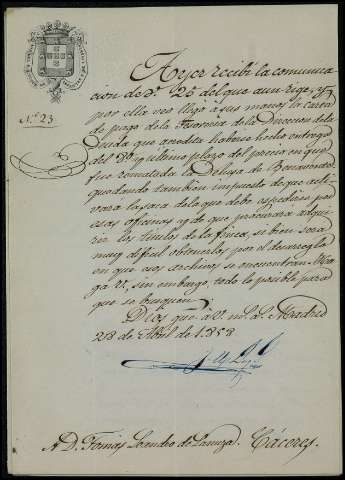 N.º 23
Ayer recibí la comunica
cion de V. 25 del que aun rige, y
por ella veo llegó á sus manos la carta
de pago de la Tesoreria de la Direccion de la
Deuda que acredita haberse hecho entrega
del y ultimo plazo del precio en que
fue rematada la Dehesa de Benavente
quedando tambien impuesto de que acti
vará la saca de la que debe espedirse por
esas oficinas y de que procurará adqui
rir los titulos de la finca, si bien será
muy dificil obtenerlos por el desarreglo
en que esos archivos se encuentran. Ha
ga V. sin embargo, todo lo posible para
que se busquen
Dios gue. á V. ms. as. Madrid
28 de Abril de 1858
A D. Tomas Leandro de Lanuza. Cáceres.